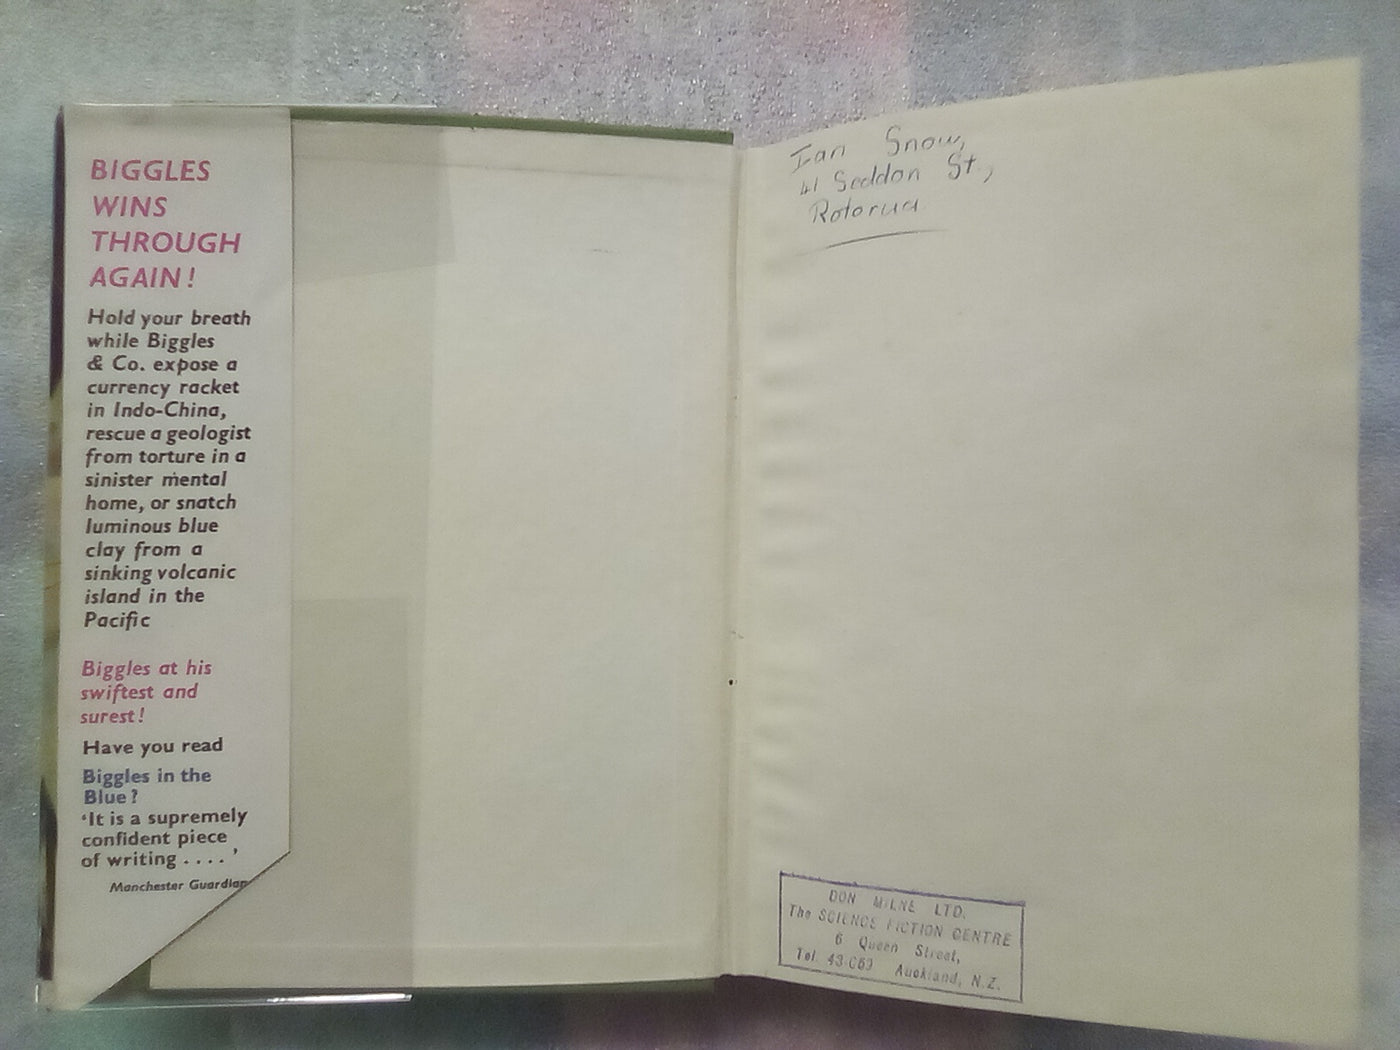 BIGGLES
WINS
THROUGH
AGAIN!
Hold your breath
while Biggles
& Co. expose a
currency racket
in Indo-China,
rescue a geologist
from torture in a
sinister mental
home, or snatch
luminous blue
clay from a
sinking volcanic
island in the
Pacific
Biggles at his
swiftest and
surest!
Have you read
Biggles in the
Blue?
‘It is a supremely
confident piece
of writing . . . . ’
Manchester Guardian
Ian Snow,
41 Seddon St,
Rotorua
DON MILNE LTD.
The SCIENCE FICTION CENTRE
6 Queen Street,
Tel. Auckland, N.Z.